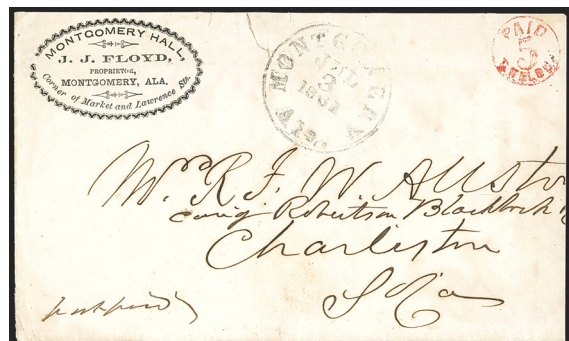 MONTGOMERY HALL,
J. J. FLOYD,
PROPRIETOR,
MONTGOMERY, ALA.
Corner of Market and Lawrence Sts.
MONTGOMERY
JUL
3
1861
PAID
5
Mr. R. F. W. Allston
Robertson Blacklock
Charleston
S Ca